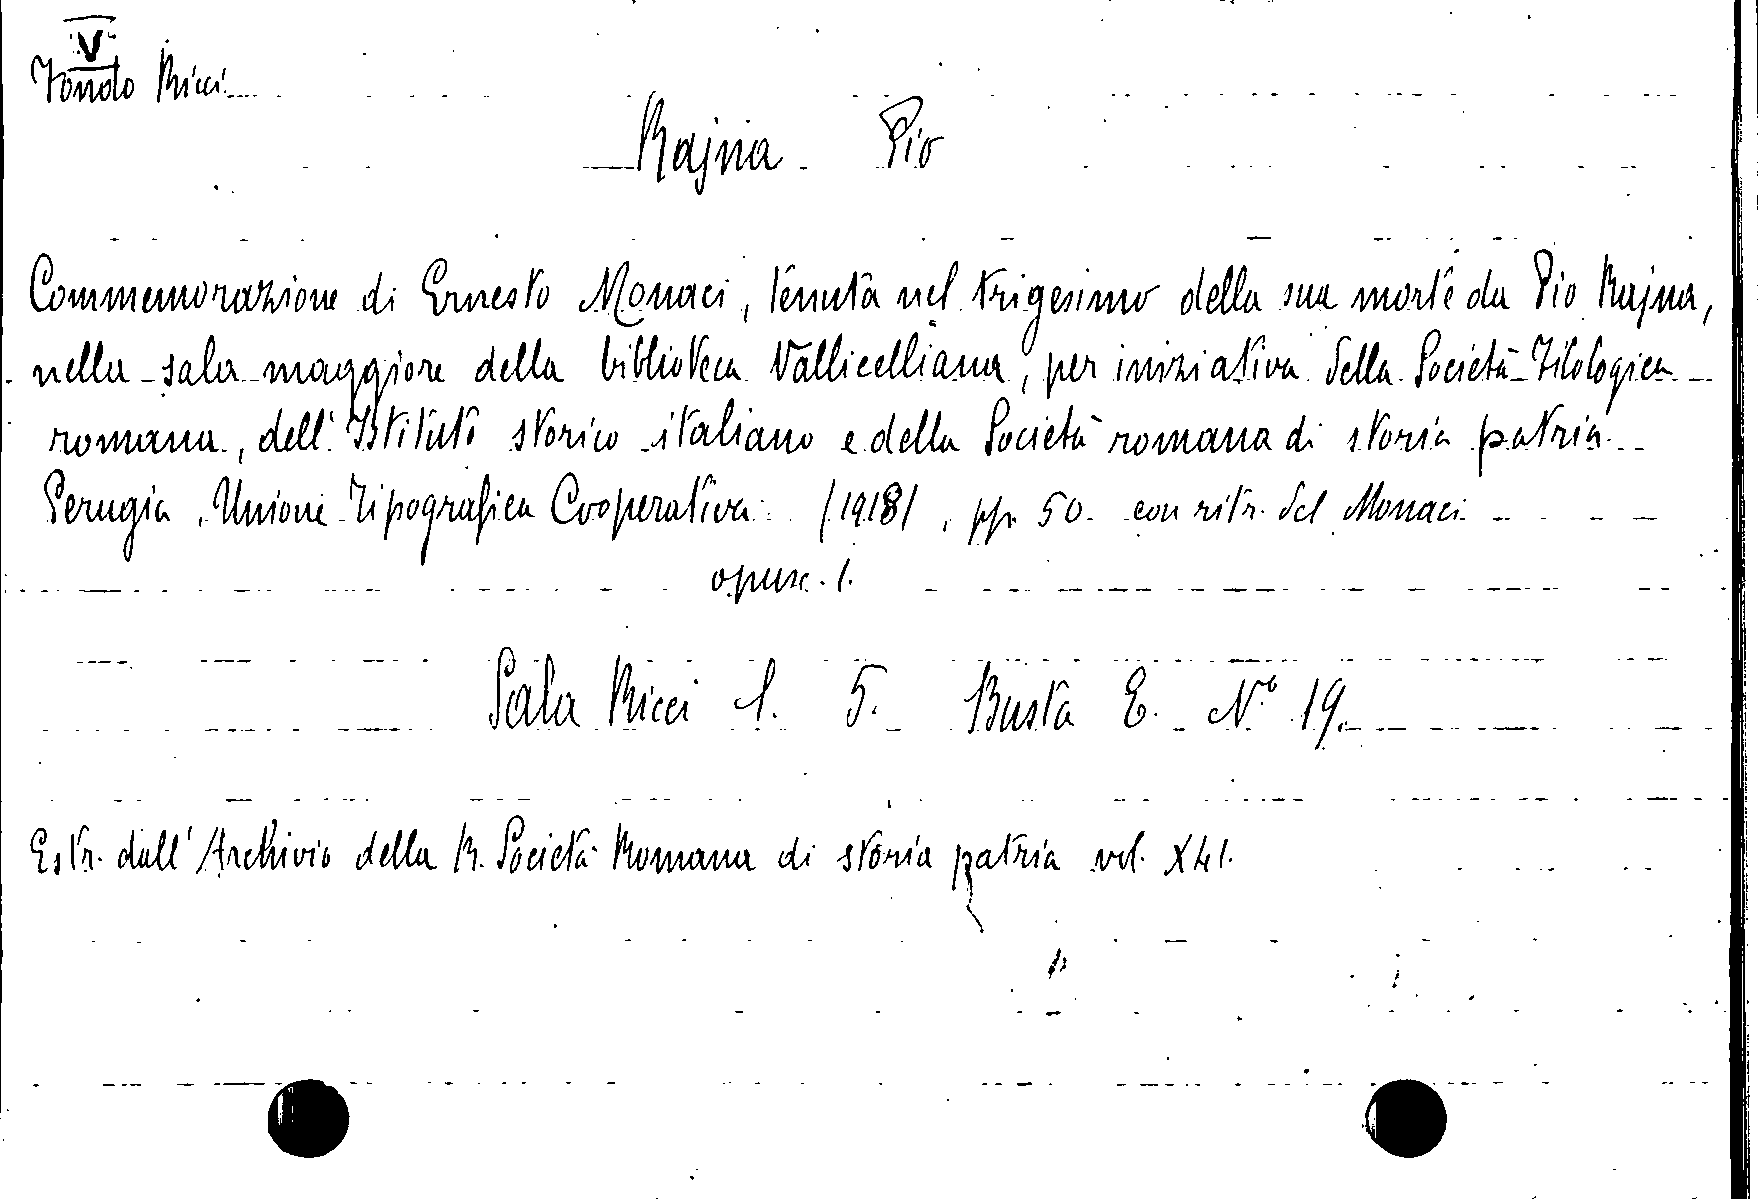 V
Fondo Ricci
Rajna Pio
Commemorazione di Ernesto Monaci, tenuta nel trigesimo della sua morte da Pio Rajna,
nella sala maggiore della biblioteca Vallicelliana, per iniziativa della Società Filologica
romana, dell'Istituto storico italiano e della Società romana di storia patria.
Perugia, Unione Tipografica Cooperativa (1918), pp. 50. con ritr. del Monaci
opusc. 1.
Sala Ricci l. 5. Busta E. N.º 19.
Estr. dall'Archivio della R. Società Romana di storia patria vol. XLI.